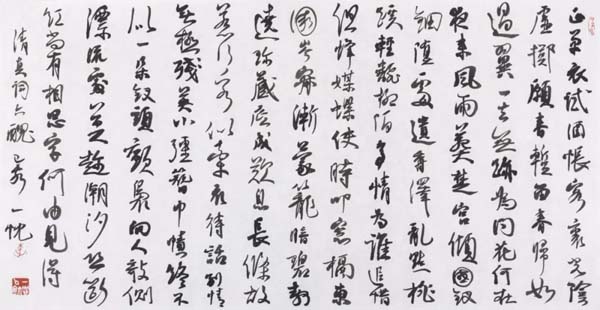 正單衣試酒悵客裏光陰
虛擲願春暫留春歸如
過翼一去無跡為問花何在
夜來風雨葬楚宮傾國釵
鈿墮處遺香澤亂點桃
蹊輕翻柳陌多情為誰追惜
但蜂媒蝶使時叩窗槅東
園岑寂漸蒙籠暗碧靜
遶珍叢底成歎息長條故
惹行客似牽衣待話別情
無極殘英小強簪巾幘終不
似一朵釵頭顫裊向人敧側
漂流處莫趁潮汐恐斷
紅尚有相思字何由見得
清真詞六醜 一忱